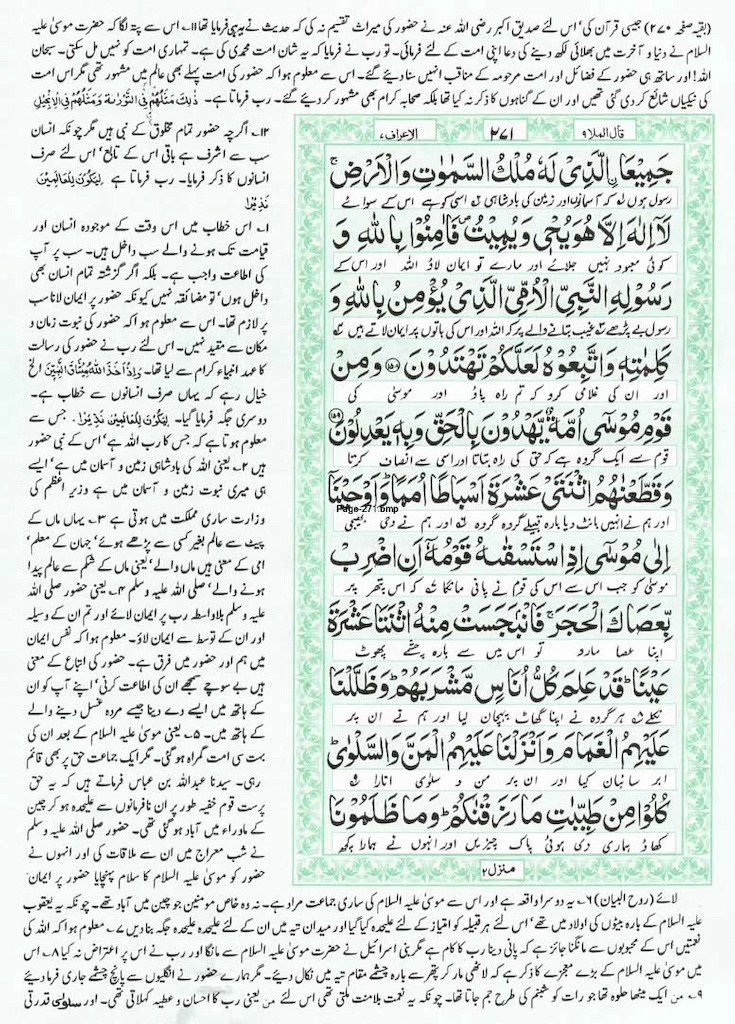 (بقیہ صفحہ ۲۷۰) جیسی قرآن کی' اس لئے صدیق اکبر رضی اللہ عنہ نے حضور کی میراث تقسیم نہ کی کہ حدیث نے یہ ہی فرمایا تھا ۱۱۔ اس سے پتہ لگا کہ حضرت موسیٰ علیہ
السلام نے دنیا و آخرت میں بھلائی لکھ دینے کی دعا اپنی امت کے لئے فرمائی۔ تو رب نے فرمایا کہ یہ شان امت محمدی کی ہے۔ تمہاری امت کو نہیں مل سکتی۔ سبحان
اللہ! اور ساتھ ہی حضور کے فضائل اور امت مرحومہ کے مناقب انہیں سنا دیئے گئے۔ اس سے معلوم ہوا کہ حضور کی امت پہلے بھی عالم میں مشہور تھی مگر اس امت
کی نیکیاں شائع کر دی گئی تھیں اور ان کے گناہوں کا ذکر نہ کیا تھا بلکہ صحابہ کرام بھی مشہور کر دیئے گئے۔ رب فرماتا ہے۔ ذٰلِكَ مَثَلُهُمْ فِي التَّوْرٰىةِ وَمَثَلُهُمْ فِي الْاِنْجِيْلِ
۱۲۔ اگرچہ حضور تمام مخلوق کے نبی ہیں مگر چونکہ انسان
سب سے اشرف ہے باقی اس کے تابع' اس لئے صرف
انسانوں کا ذکر فرمایا۔ رب فرماتا ہے لِيَكُوْنَ لِلْعَالَمِيْنَ
نَذِيْرًا
۱۔ اس خطاب میں اس وقت کے موجودہ انسان اور
قیامت تک ہونے والے سب داخل ہیں۔ سب پر آپ
کی اطاعت واجب ہے۔ بلکہ اگر گزشتہ تمام انسان بھی
داخل ہوں' تو مضائقہ نہیں کیونکہ حضور پر ایمان لانا سب
پر لازم تھا۔ اس سے معلوم ہوا کہ حضور کی نبوت زمان و
مکان سے مقید نہیں۔ اس لئے رب نے حضور کی رسالت
کا عہد انبیاء کرام سے لیا تھا۔ وَاِذْ اَخَذَ اللّٰهُ مِيْثَاقَ النَّبِيّٖنَ الخ
خیال رہے کہ یہاں صرف انسانوں سے خطاب ہے۔
دوسری جگہ فرمایا گیا۔ لِيَكُوْنَ لِلْعَالَمِيْنَ نَذِيْرًا۔ جس سے
معلوم ہوتا ہے کہ جس کا رب اللہ ہے' اس کے نبی حضور
ہیں ۲۔ یعنی اللہ کی بادشاہی زمین و آسمان میں ہے' ایسے
ہی میری نبوت زمین و آسمان میں ہے وزیر اعظم کی
وزارت ساری مملکت میں ہوتی ہے ۳۔ یہاں ماں کے
پیٹ سے عالم بغیر کسی سے پڑھے ہوئے' جہان کے معلم'
امی کے معنی ہیں ماں والے' یعنی ماں کے شکم سے عالم پیدا
ہونے والے' صلی اللہ علیہ وسلم ۴۔ یعنی حضور صلی اللہ
علیہ وسلم بلاواسطہ رب پر ایمان لائے اور تم ان کے وسیلہ
اور ان کے توسط سے ایمان لاؤ۔ معلوم ہوا کہ نفس ایمان
میں ہم اور حضور میں فرق ہے۔ حضور کی اتباع کے معنی
ہیں بے سوچے سمجھے ان کی اطاعت کرنی' اپنے آپ کو ان
کے ہاتھ میں ایسے دے دینا جیسے مردہ غسل دینے والے
کے ہاتھ میں۔ ۵۔ یعنی موسیٰ علیہ السلام کے بعد ان کی
بہت سی امت گمراہ ہو گئی۔ مگر ایک جماعت حق پر بھی قائم
رہی۔ سیدنا عبداللہ بن عباس فرماتے ہیں کہ یہ حق
پرست قوم خفیہ طور پر ان نافرمانوں سے علیحدہ ہو کر چین
کے ماوراء میں آباد ہو گئی تھی۔ حضور صلی اللہ علیہ وسلم
نے شب معراج میں ان سے ملاقات کی اور انہوں نے
حضور کو موسیٰ علیہ السلام کا سلام پہنچایا حضور پر ایمان
قال الملا ۹ ۲۷۱ الاعراف ۷
جَمِيْعَا ِۨالَّذِيْ لَهٗ مُلْكُ السَّمٰوٰتِ وَالْاَرْضِ ۚ
رسول ہوں کہ آسمانوں اور زمین کی بادشاہی اسی کو ہے اس کے سوائے
لَاۤ اِلٰهَ اِلَّا هُوَ يُحْيٖ وَيُمِيْتُ ۪ فَاٰمِنُوْا بِاللّٰهِ وَ
کوئی معبود نہیں جلائے اور مارے تو ایمان لاؤ اللہ اور اس کے
رَسُوْلِهِ النَّبِيِّ الْاُمِّيِّ الَّذِيْ يُؤْمِنُ بِاللّٰهِ وَ
رسول بے پڑھے غیب بتانے والے پر کہ اللہ اور اس کی باتوں پر ایمان لاتے ہیں
كَلِمٰتِهٖ وَاتَّبِعُوْهُ لَعَلَّكُمْ تَهْتَدُوْنَ ۝۱۵۸ وَمِنْ
اور ان کی غلامی کرو کہ تم راہ پاؤ اور موسیٰ کی
قَوْمِ مُوْسٰۤى اُمَّةٌ يَّهْدُوْنَ بِالْحَقِّ وَبِهٖ يَعْدِلُوْنَ ۝۱۵۹
قوم سے ایک گروہ ہے کہ حق کی راہ بتاتا اور اسی سے انصاف کرتا
وَقَطَّعْنٰهُمُ اثْنَتَيْ عَشْرَةَ اَسْبَاطًا اُمَمًا ؕ وَاَوْحَيْنَاۤ
Page-271.bmp
اور ہم نے انہیں بانٹ دیا بارہ قبیلے گروہ گروہ اور ہم نے وحی بھیجی
اِلٰى مُوْسٰۤى اِذِ اسْتَسْقٰىهُ قَوْمُهٗۤ اَنِ اضْرِبْ
موسیٰ کو جب اس سے اس کی قوم نے پانی مانگا کہ اس پتھر پر
بِّعَصَاكَ الْحَجَرَ ۚ فَانْۢبَجَسَتْ مِنْهُ اثْنَتَا عَشْرَةَ
اپنا عصا مارو تو اس میں سے بارہ چشمے پھوٹ
عَيْنًا ؕ قَدْ عَلِمَ كُلُّ اُنَاسٍ مَّشْرَبَهُمْ ؕ وَظَلَّلْنَا
نکلے ہر گروہ نے اپنا گھاٹ پہچان لیا اور ہم نے ان پر
عَلَيْهِمُ الْغَمَامَ وَاَنْزَلْنَا عَلَيْهِمُ الْمَنَّ وَالسَّلْوٰى ؕ
ابر سائبان کیا اور ان پر من و سلویٰ اتارا
كُلُوْا مِنْ طَيِّبٰتِ مَا رَزَقْنٰكُمْ ؕ وَمَا ظَلَمُوْنَا
کھاؤ ہماری دی ہوئی پاک چیزیں اور انہوں نے ہمارا کچھ
منزل ۲
لائے (روح البیان) ۶۔ یہ دوسرا واقعہ ہے اور اس سے موسیٰ علیہ السلام کی ساری جماعت مراد ہے۔ نہ وہ خاص مومنین جو چین میں آباد تھے۔ چونکہ یہ یعقوب
علیہ السلام کے بارہ بیٹوں کی اولاد میں تھے' اس لئے ہر قبیلہ کو امتیاز کے لئے علیحدہ کیا گیا اور میدان تیہ میں ان کے لئے علیحدہ علیحدہ جگہ بنا دیں ۷۔ معلوم ہوا کہ اللہ کی
نعمتیں اس کے محبوبوں سے مانگنا جائز ہے کہ پانی دینا رب کا کام ہے مگر بنی اسرائیل نے حضرت موسیٰ علیہ السلام سے مانگا اور رب نے اس پر اعتراض نہ کیا ۸۔ اس
میں موسیٰ علیہ السلام کے بڑے معجزے کا ذکر ہے کہ لاٹھی مار کر پتھر سے بارہ چشمے مقام تیہ میں نکال دیئے۔ مگر ہمارے حضور نے انگلیوں سے پانچ چشمے جاری فرما دیئے
۹۔ من ایک میٹھا حلوہ تھا جو رات کو شبنم کی طرح جم جاتا تھا۔ چونکہ یہ نعمت بلامنت ملتی تھی اس لئے من یعنی رب کا احسان و عطیہ کہلاتی تھی۔ اور سلویٰ قدرتی